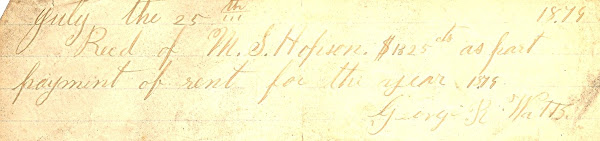 July the 25th 1879
Recd of M. S. Hopson. $1325cts as part
payment of rent for the year 179
George R Watts.